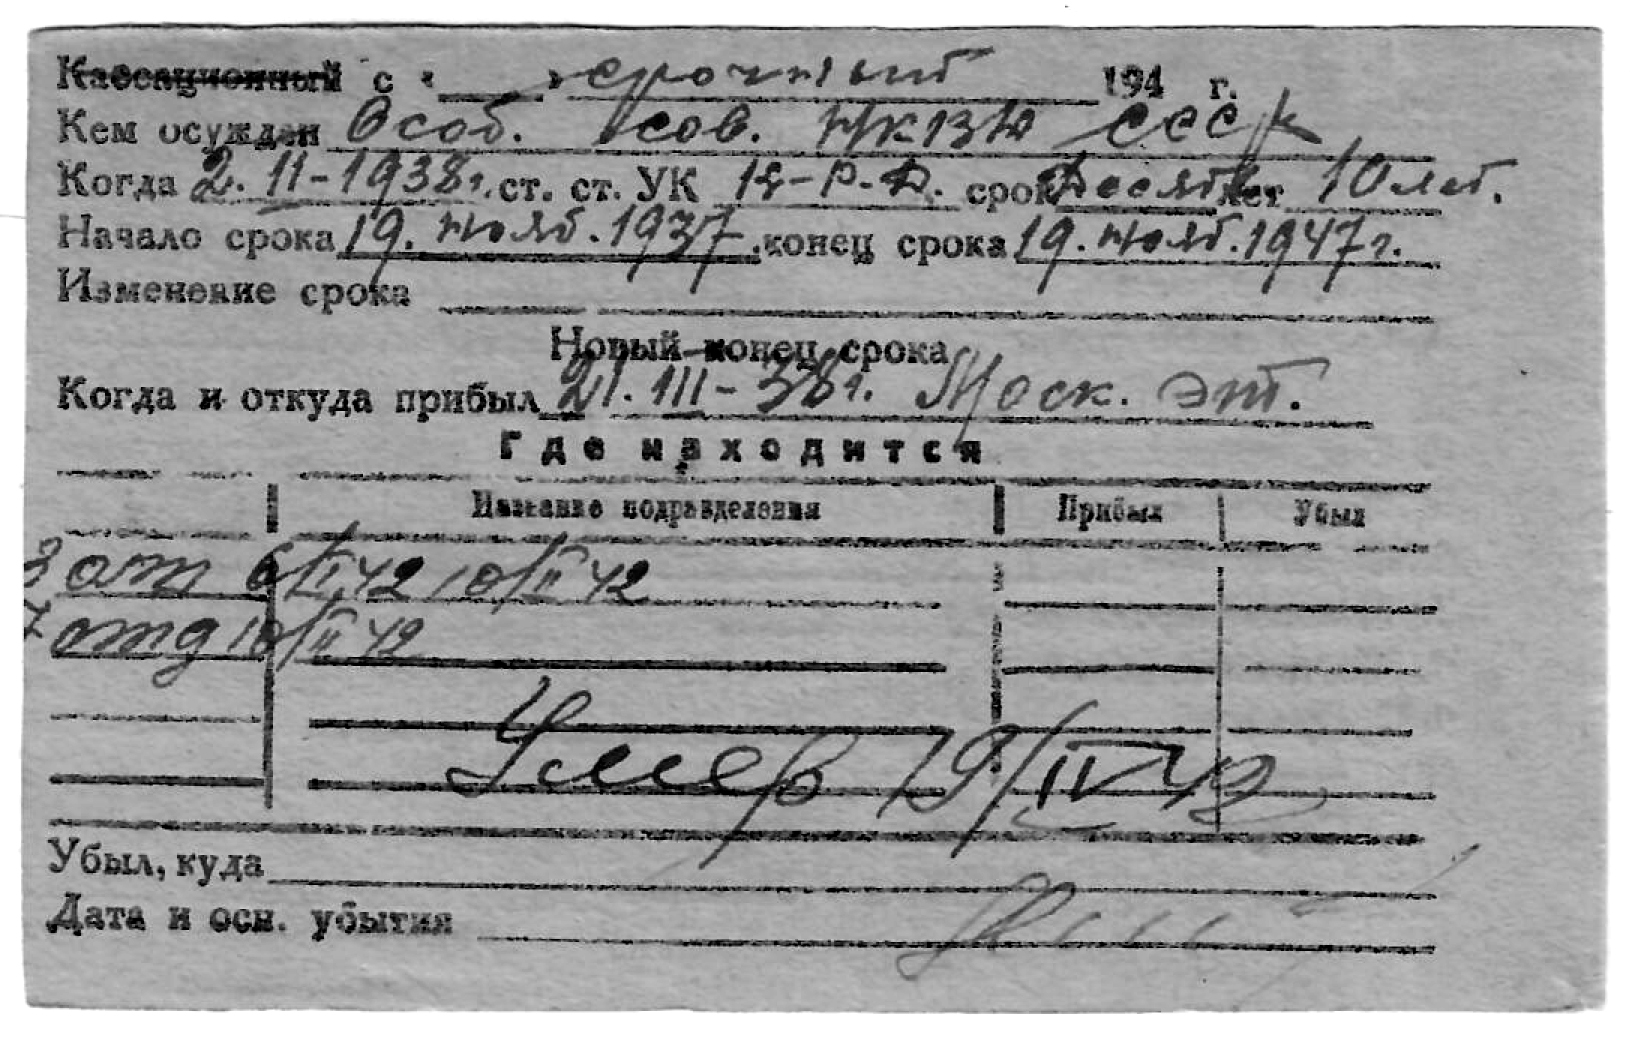 Кассационный с « » срочный 194 г.
Кем осужден Особ. Сов. НКВД СССР
Когда 2.II-1938г. ст. ст. УК К-Р.Д. срок Десять лет 10 лет.
Начало срока 19. нояб. 1937. конец срока 19. нояб. 1947г.
Изменение срока
Новый конец срока
Когда и откуда прибыл 21.III-38г. Моск. эт.
Где находится
Название подразделения Прибыл Убыл
3 отд 6/II 42 10/II 42
7 отд 10/II 42
Умер 19/IV 42
Убыл, куда
Дата и осн. убытия